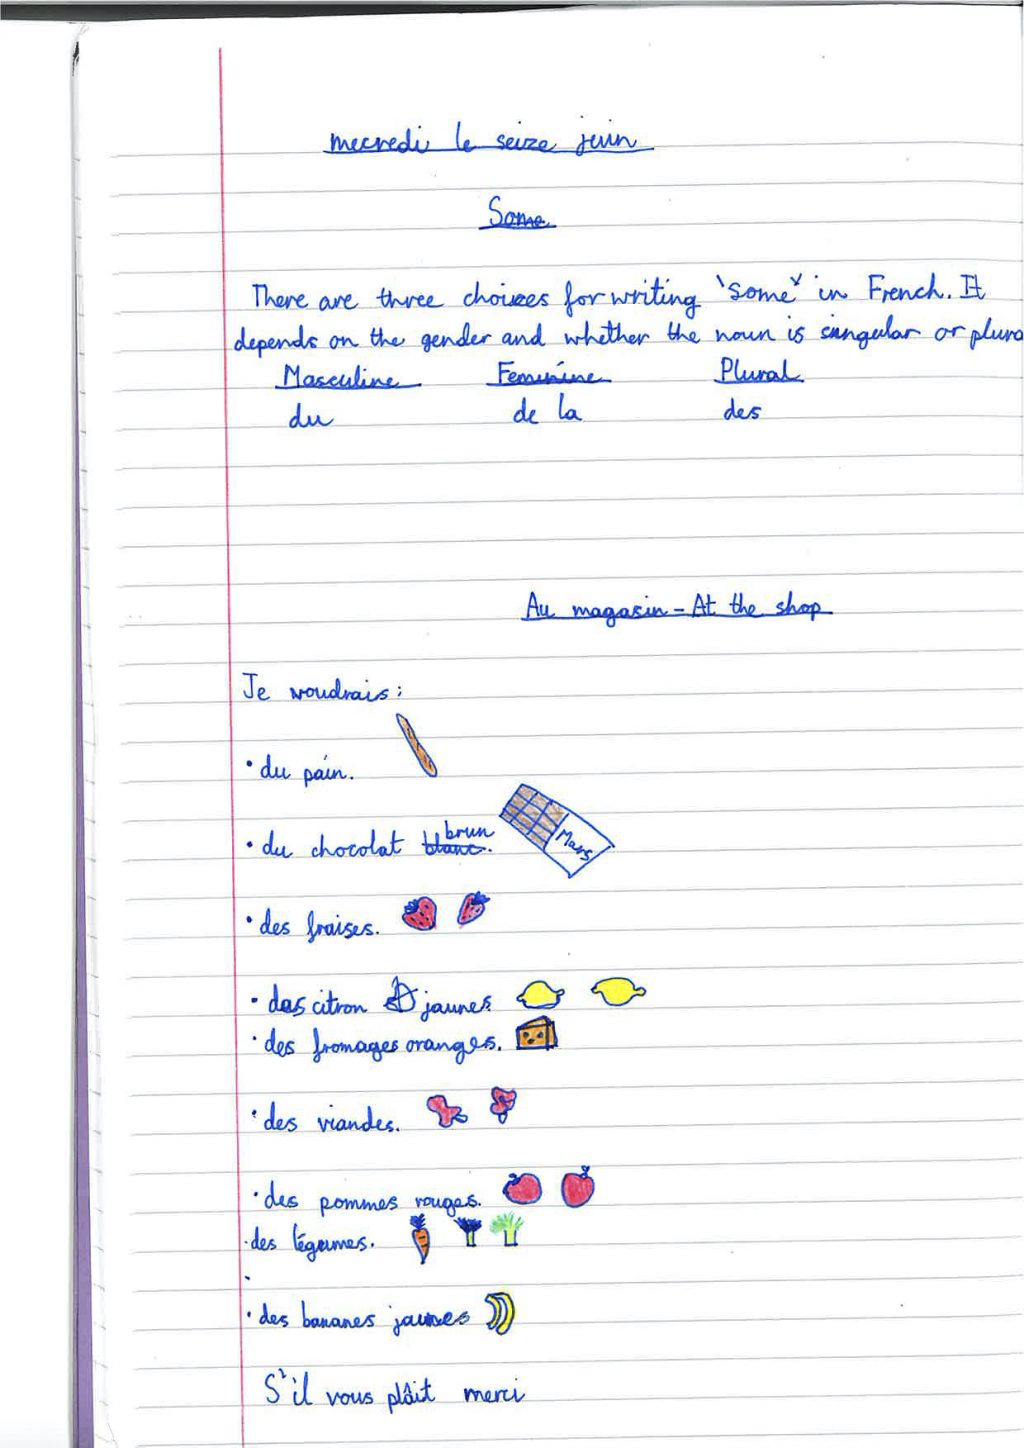 mecredi le seize juin
Some
There are three choices for writing 'some' in French. It
depends on the gender and whether the noun is singular or plura
Masculine Feminine Plural
du de la des
Au magasin - At the shop
Je voudrais:
• du pain.
• du chocolat blanc brun.
Mars
• des fraises.
• des citron jaunes
• des fromages oranges.
• des viandes.
• des pommes rouges.
• des légumes.
•
• des bananes jaunes
S'il vous plâit merci